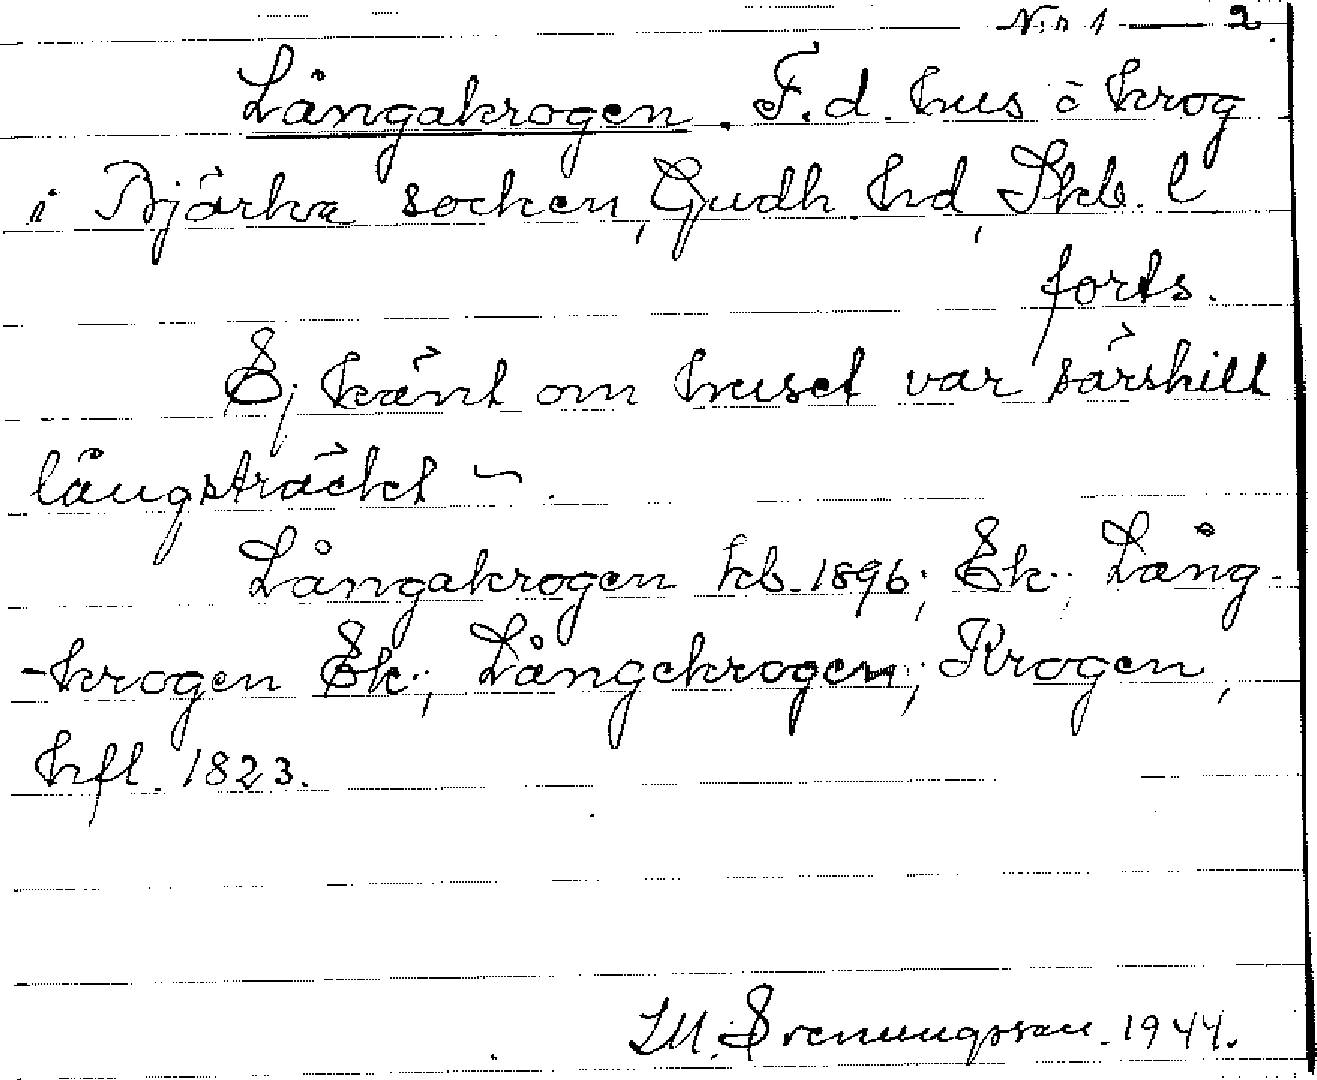 N:o 1 — 2.
Långakrogen. F.d. hus o krog
i Bjärka socken, Gudh. hd, Skb. l
forts.
Ej känt om huset var särskilt
långsträckt ~.
Långakrogen hb. 1896; Ek.; Lång-
-krogen Ek.; Långekrogen; Krogen,
hfl. 1823.
Svenungsson. 1944.